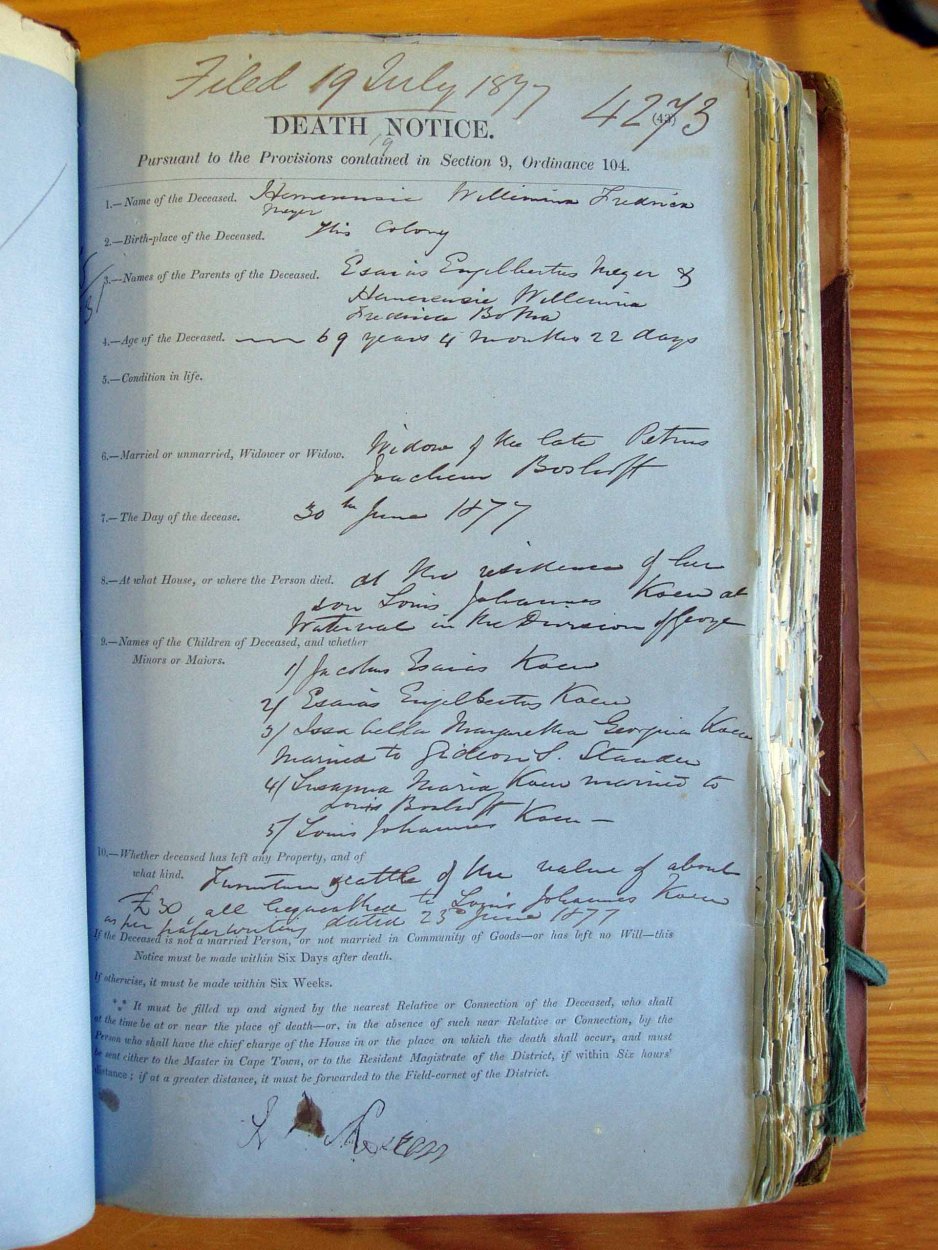 Filed 19 July 1877
4273
(43)
DEATH NOTICE.
19
Pursuant to the Provisions contained in Section 9, Ordinance 104.
1.—Name of the Deceased. Hemerensie Willimina Fredrica
Meyer
2.—Birth-place of the Deceased. This Colony
3.—Names of the Parents of the Deceased. Esaias Engelbertus Meyer &
Hemerensie Willemina
Fredrica Botha
4.—Age of the Deceased. — 69 years 4 months 22 days
5.—Condition in life.
6.—Married or unmarried, Widower or Widow. Widow of the late Petrus
Joachem Boshoff
7.—The Day of the decease. 30th June 1877
8.—At what House, or where the Person died. at the residence of her
son Louis Johannes Koen at
Waterval in the Division of George
9.—Names of the Children of Deceased, and whether
Minors or Majors.
1/ Jacobus Esaias Koen
2/ Esaias Engelbertus Koen
3/ Issabella Margaretha Georgina Koen
married to Gideon S. Stander
4/ Susanna Maria Koen married to
Louis Boshoff
5/ Louis Johannes Koen —
10.—Whether deceased has left any Property, and of
what kind. Furniture & cattle of the value of about
£30, all bequeathed to Louis Johannes Koen
as per paperwriting dated 23d June 1877
If the Deceased is not a married Person, or not married in Community of Goods—or has left no Will—this
Notice must be made within Six Days after death.
If otherwise, it must be made within Six Weeks.
It must be filled up and signed by the nearest Relative or Connection of the Deceased, who shall
at the time be at or near the place of death—or, in the absence of such near Relative or Connection, by the
Person who shall have the chief charge of the House in or the place on which the death shall occur, and must
be sent either to the Master in Cape Town, or to the Resident Magistrate of the District, if within Six hours'
distance; if at a greater distance, it must be forwarded to the Field-cornet of the District.